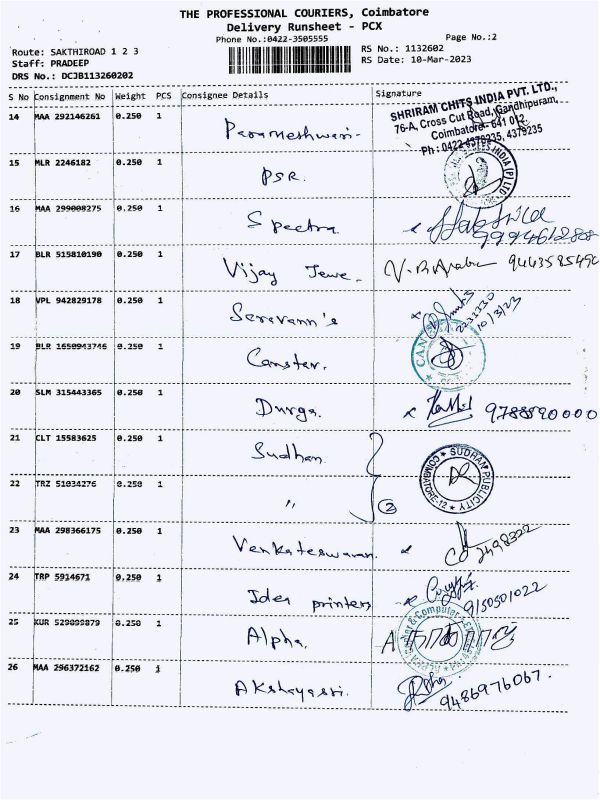 THE PROFESSIONAL COURIERS, Coimbatore
Delivery Runsheet - PCX
Phone No.:0422-3505555
Page No.:2
Route: SAKTHIROAD 1 2 3
RS No.: 1132602
Staff: PRADEEP
RS Date: 10-Mar-2023
DRS No.: DCJB113260202
S No Consignment No Weight PCS Consignee Details Signature
14 MAA 292146261 0.250 1 Parameshwari-
SHRIRAM CHITS INDIA PVT. LTD.,
76-A, Cross Cut Road, Gandhipuram,
Coimbatore - 641 012.
Ph : 0422-4379235, 4379235
15 MLR 2246182 0.250 1 PSR.
16 MAA 299008275 0.250 1 Spectra
9994612808
17 BLR 515810190 0.250 1 Vijay Jewe.
18 VPL 942829178 0.250 1 Saravann's
2232230
10/3/23
19 BLR 1650943746 0.250 1 Canster.
20 SLM 315443365 0.250 1 Durga.
9788890000
21 CLT 15583625 0.250 1 Sudhan.
SUDHAN PUBLICITY
COIMBATORE-12
22 TRZ 51034276 0.250 1 "
2
23 MAA 298366175 0.250 1 Venkateswaran.
24 TRP 5914671 0.250 1 Idea printers
9150501022
25 KUR 529099879 0.250 1 Alpha.
26 MAA 296372162 0.250 1 Akshayasri.
9486976067.